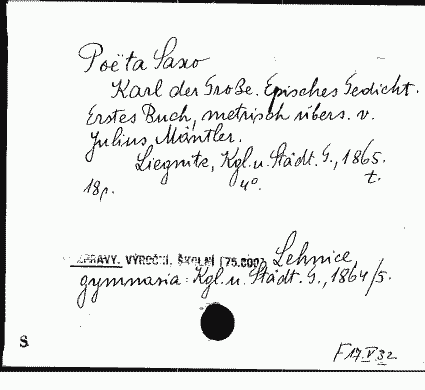 Poëta Saxo
Karl der Große. Episches Gedicht.
Erstes Buch, metrisch übers. v.
Julius Mäntler.
Liegnitz, Kgl. u. Städt. G., 1865.
18 p. 4°. t.
ZPRÁVY. VÝROČNÍ. ŠKOLNÍ (75.000). Lehnice,
gymnasia: Kgl. u. Städt. G., 1864/5.
S
F 17.V 32